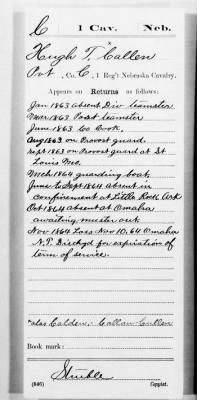 C | 1 Cav. | Neb.
Hugh T. Callen
Pvt, Co. C, 1 Reg't Nebraska Cavalry.
Appears on Returns as follows:
Jan 1863 absent Div teamster
Mar 1863 Post teamster
June 1863 Co Cook,
Aug 1863 on Provost guard
Sept 1863 on Provost guard at St
Louis Mo.
Mch 1864 guarding boat,
June to Sept 1864 absent in
confinement at Little Rock Ark
Oct 1864 absent at Omaha
awaiting muster out
Nov 1864 Loss Nov 10, 64 Omaha
N.T. Dischgd for expiration of
term of service.
Calden, Callan
Book mark:
Struble
(546) Copyist.